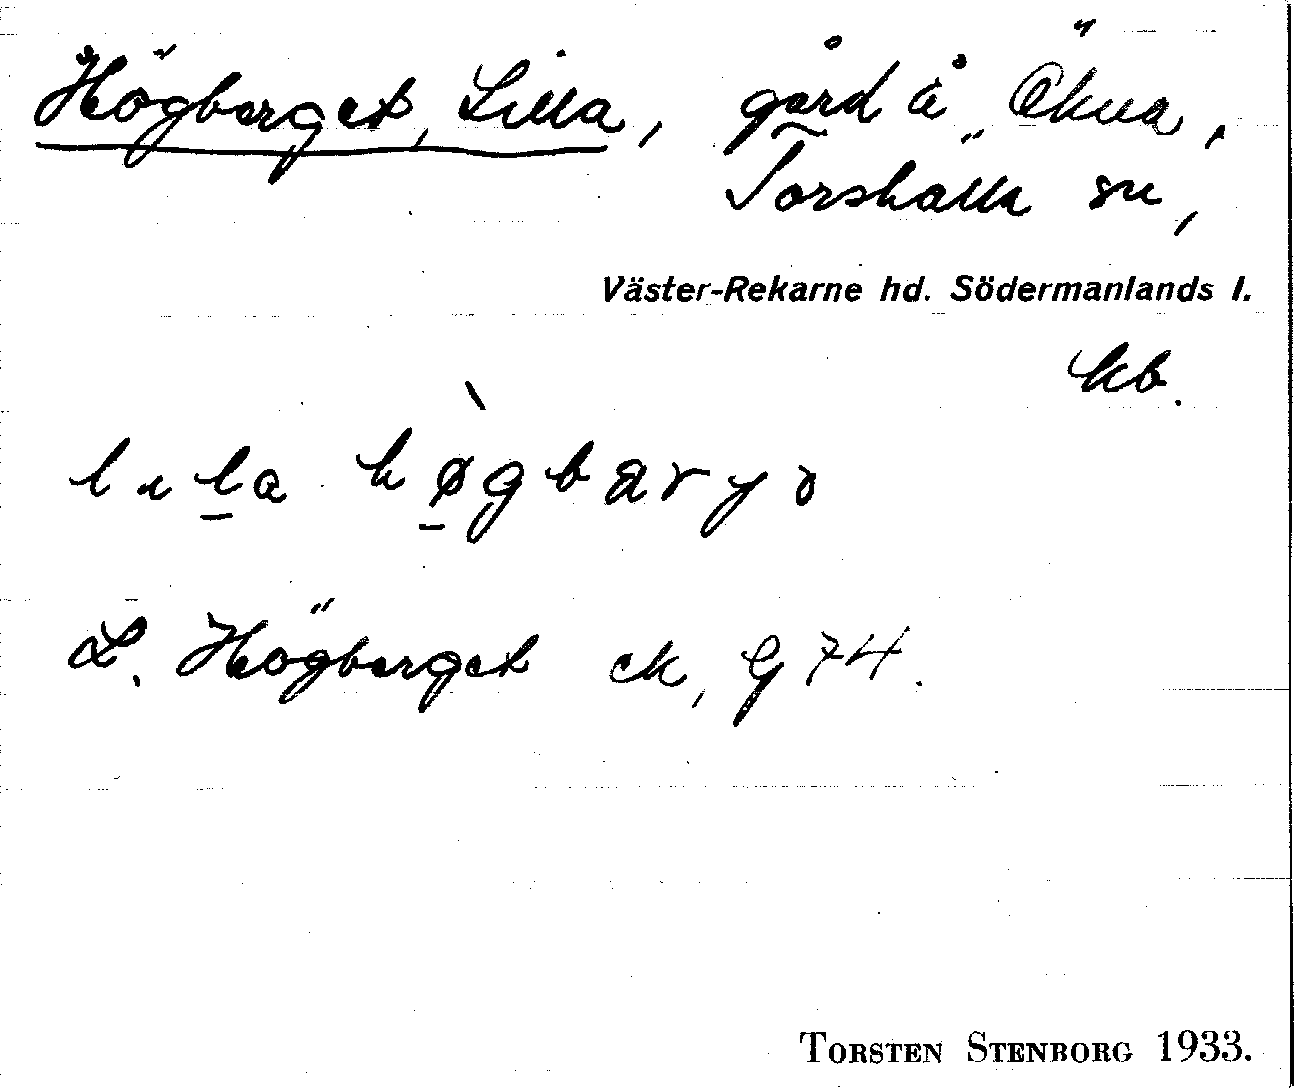 Högberget, Lilla, gård å Ökna,
Torshälla sn,
Väster-Rekarne hd. Södermanlands l.
kb.
lıla hø̀gbaryə
L. Högberget ek, G 74.
TORSTEN STENBORG 1933.